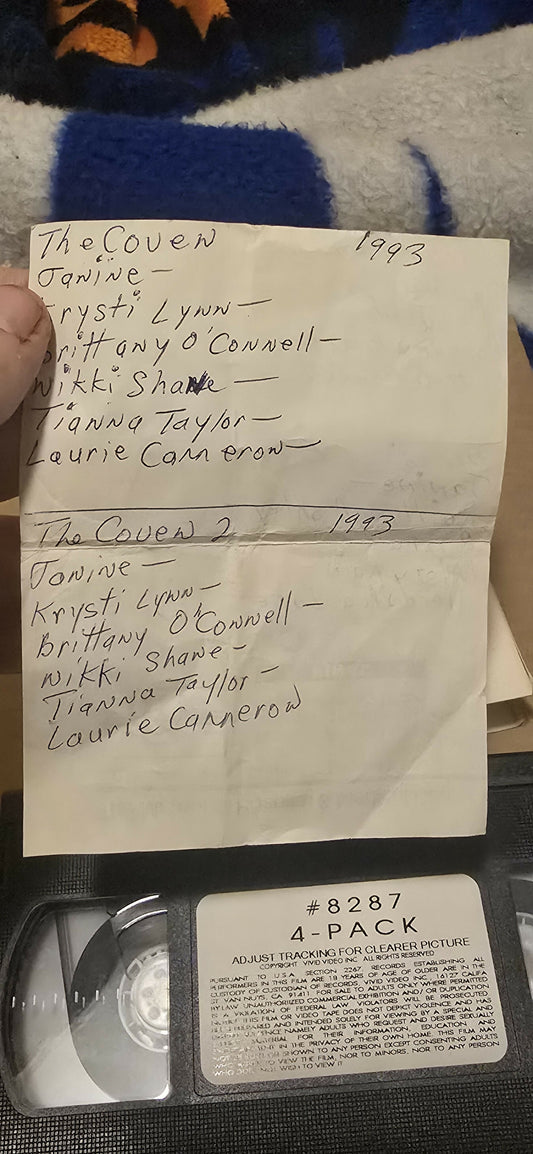 The Coven 1993
Janine -
Krysti Lynn -
Brittany O'Connell -
Nikki Shane -
Tianna Taylor -
Laurie Canneron -
The Coven 2 1993
Janine -
Krysti Lynn -
Brittany O'Connell -
Nikki Shane -
Tianna Taylor -
Laurie Canneron
#8287
4-PACK
ADJUST TRACKING FOR CLEARER PICTURE
COPYRIGHT VIVID VIDEO INC. ALL RIGHTS RESERVED
PURSUANT TO U.S.A. SECTION 2267, RECORDS ESTABLISHING ALL
PERFORMERS IN THIS FILM ARE 18 YEARS OF AGE OF OLDER ARE IN THE
CUSTODY OF CUSTODIAN OF RECORDS, VIVID VIDEO INC., 16127 CALIFA
ST VAN NUYS, CA. 91411. FOR SALE TO ADULTS ONLY WHERE PERMITTED
BY LAW. UNAUTHORIZED COMMERCIAL EXHIBITION AND/OR DUPLICATION
IS A VIOLATION OF FEDERAL LAW. VIOLATORS WILL BE PROSECUTED.
THIS FILM OR VIDEO TAPE DOES NOT DEPICT VIOLENCE AND HAS
PREPARED AND INTENDED SOLELY FOR VIEWING BY A SPECIAL AND
NAMELY ADULTS WHO REQUEST AND DESIRE SEXUALLY
MATERIAL FOR THEIR INFORMATION, EDUCATION AND
IN THE PRIVACY OF THEIR OWN HOME. THIS FILM MAY
NOT OR SHOWN TO ANY PERSON EXCEPT CONSENTING ADULTS
WHO TO VIEW THE FILM, NOR TO MINORS, NOR TO ANY PERSON
WHO NOT WISH TO VIEW IT